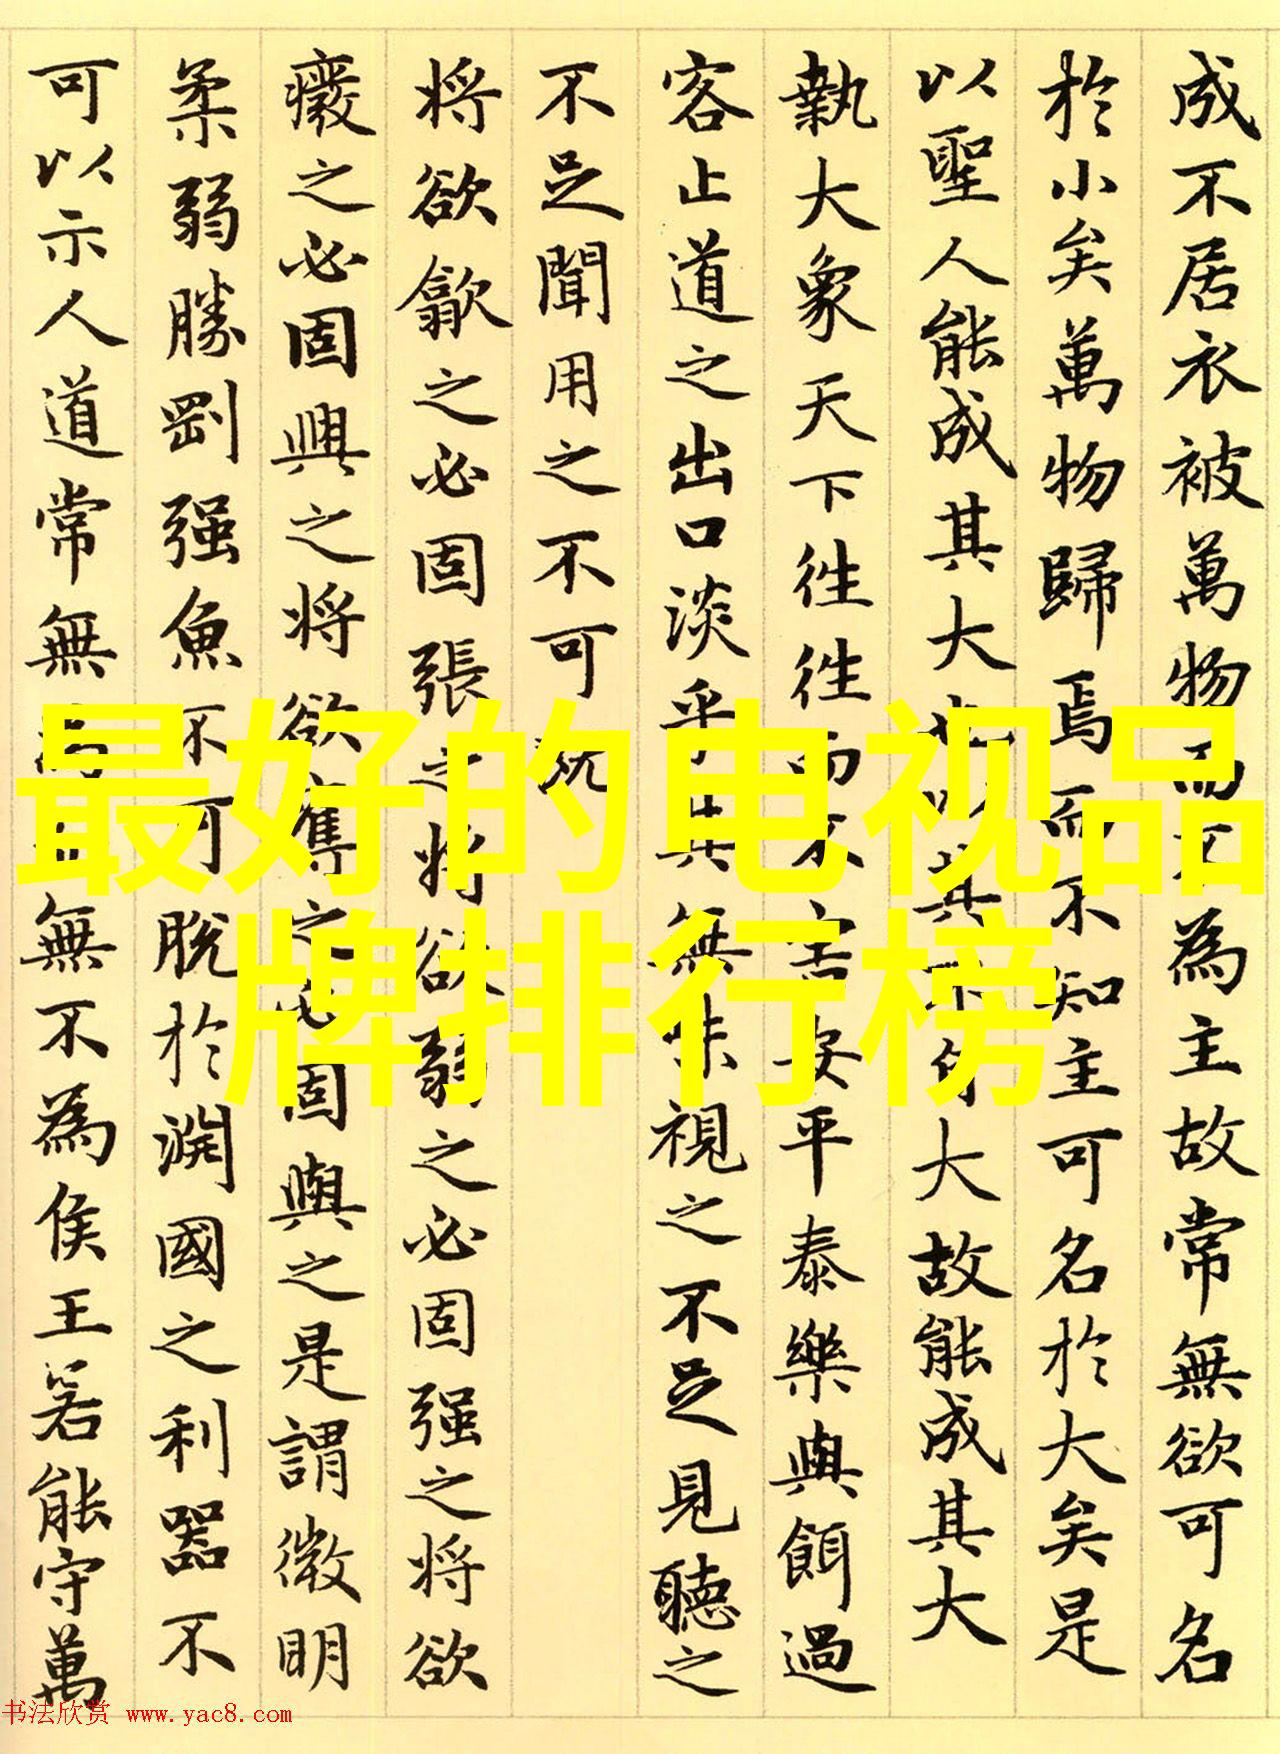 成不居衣被萬物而不為主故常無欲可名
於小矣萬物歸焉而不知主可名於大矣是
以聖人能成其大也以其不自大故能成其大
執大象天下往往而不害安平泰樂與餌過
客止道之出口淡乎其無味視之不足見聽之
不足聞用之不可既
将欲歙之必固張之将欲弱之必固强之将欲
癈之必固興之将欲奪之必固與之是謂微明
柔弱勝剛强魚不可脫於淵國之利器不
可以示人道常無為而無不為侯王若能守萬
最好的电视品
牌排行榜
书法欣赏 www.yac8.com